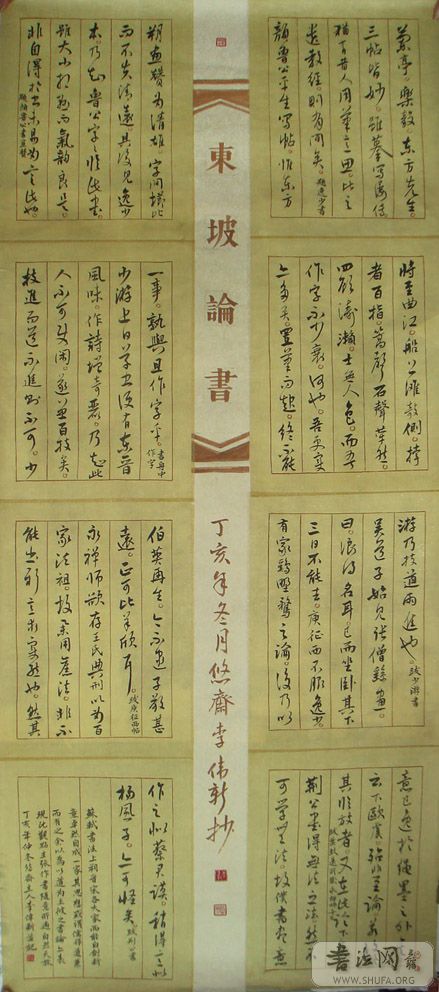 東坡論書
丁亥年冬月悠齋李偉新抄
蘭亭。樂毅。東方先生。
三帖皆妙。雖摹寫屢傳
猶有昔人用筆意思。比之
遺教經。則有間矣。題逸少書
顏魯公平生寫帖。惟東方
朔畫贊為清雄。字間櫛比
而不失清遠。其後見逸少
本乃知魯公字字臨此書。
雖大小相懸而氣韻良是。
非自得於書未易為言此也。題顏魯公書畫贊
將至曲江。船上灘欹側。撐
者百指。篙聲石聲犖然。
四顧濤瀨。士無人色。而吾
作字不少衰。何也。吾更變
亦多矣。置筆而起。終不能
一事。孰與且作字乎。書舟中作字
少游近日草書便有東晉
風味。作詩增奇麗。乃知此
人不可使閑。遂兼百技矣。
技進而道不進則不可。少
游乃技道兩進也。跋少游書
吳道子始見張僧繇畫。
曰。浪得名耳已而坐臥其下
三日不能去。庾征西不服逸少。
有家雞野鶩之論。後乃以
伯英再生。今不逮子敬甚
遠。正可比羊欣耳。跋庾征西帖
永禪師欲存王氏典刑以為百
家法祖。故舉用舊法。非不
能出新意求變態也。然其
意已逸於繩墨之外
云下歐虞殆非至論若
其臨放者又在此論下
跋葉致遠所藏永禪師千文
荊公書得無法之法然不
可學無法故僕書盡意
作之似蔡君謨。稍得意似
楊風子。亦可怪矣。跋荊公書
蘇軾書法上朔晉宋各大家而能自創新
意卓然自成一家其思想或謂儒釋道兼
而有之余以為以道為主彼之書論上表
現此觀點主張作書隨意所適自然天放
丁亥年仲冬悠齋主人李偉新並記
書法网
WWW.SHUFA.ORG